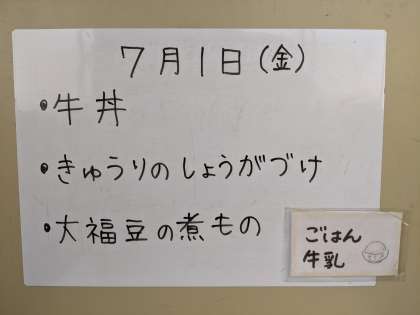 7月1日(金)
•牛丼
•きゅうりのしょうがづけ
•大福豆の煮もの
ごはん
牛乳